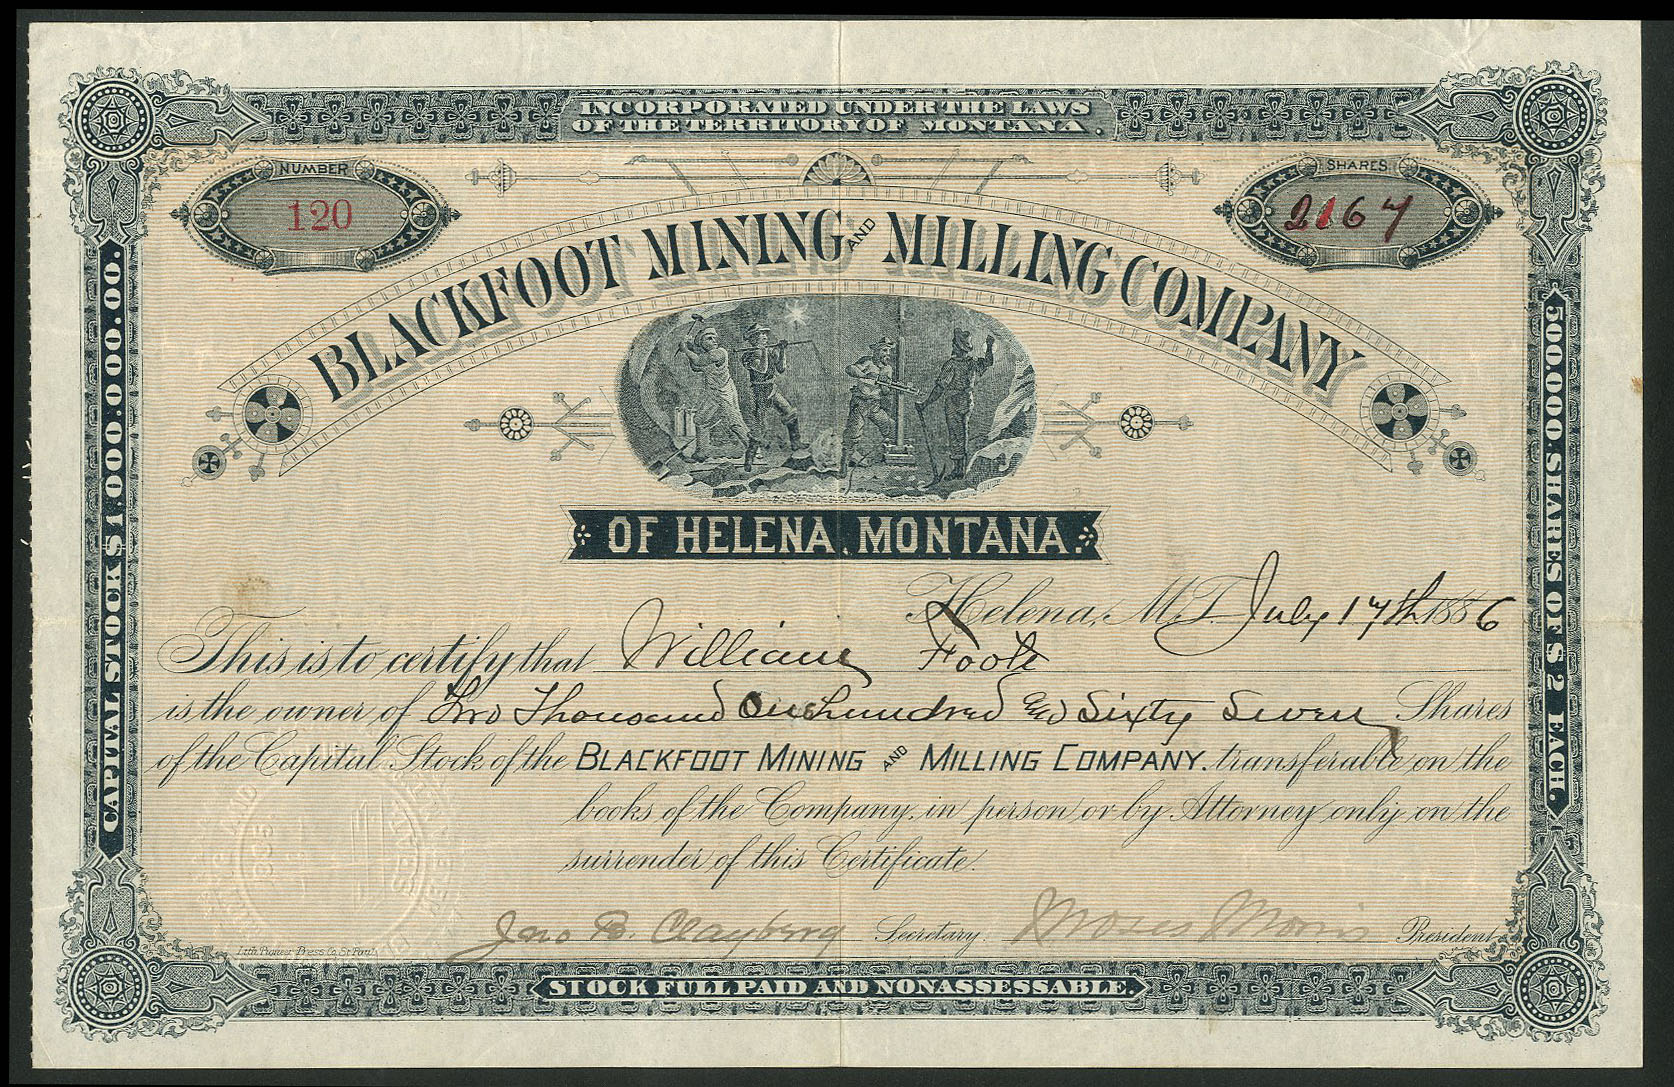 INCORPORATED UNDER THE LAWS
OF THE TERRITORY OF MONTANA.
NUMBER
120
SHARES
2167
BLACKFOOT MINING AND MILLING COMPANY
OF HELENA, MONTANA.
CAPITAL STOCK $1.000.000.00.
500.000 SHARES OF $2 EACH.
Helena, M.T. July 17th 1886
This is to certify that William Foote
is the owner of Two Thousand One hundred & Sixty Seven Shares
of the Capital Stock of the BLACKFOOT MINING AND MILLING COMPANY. transferable on the
books of the Company, in person or by Attorney only on the
surrender of this Certificate.
Jno B. Clayberg Secretary. Moses Morris President
Lith. Pioneer Press Co. St. Paul
STOCK FULL PAID AND NONASSESSABLE.